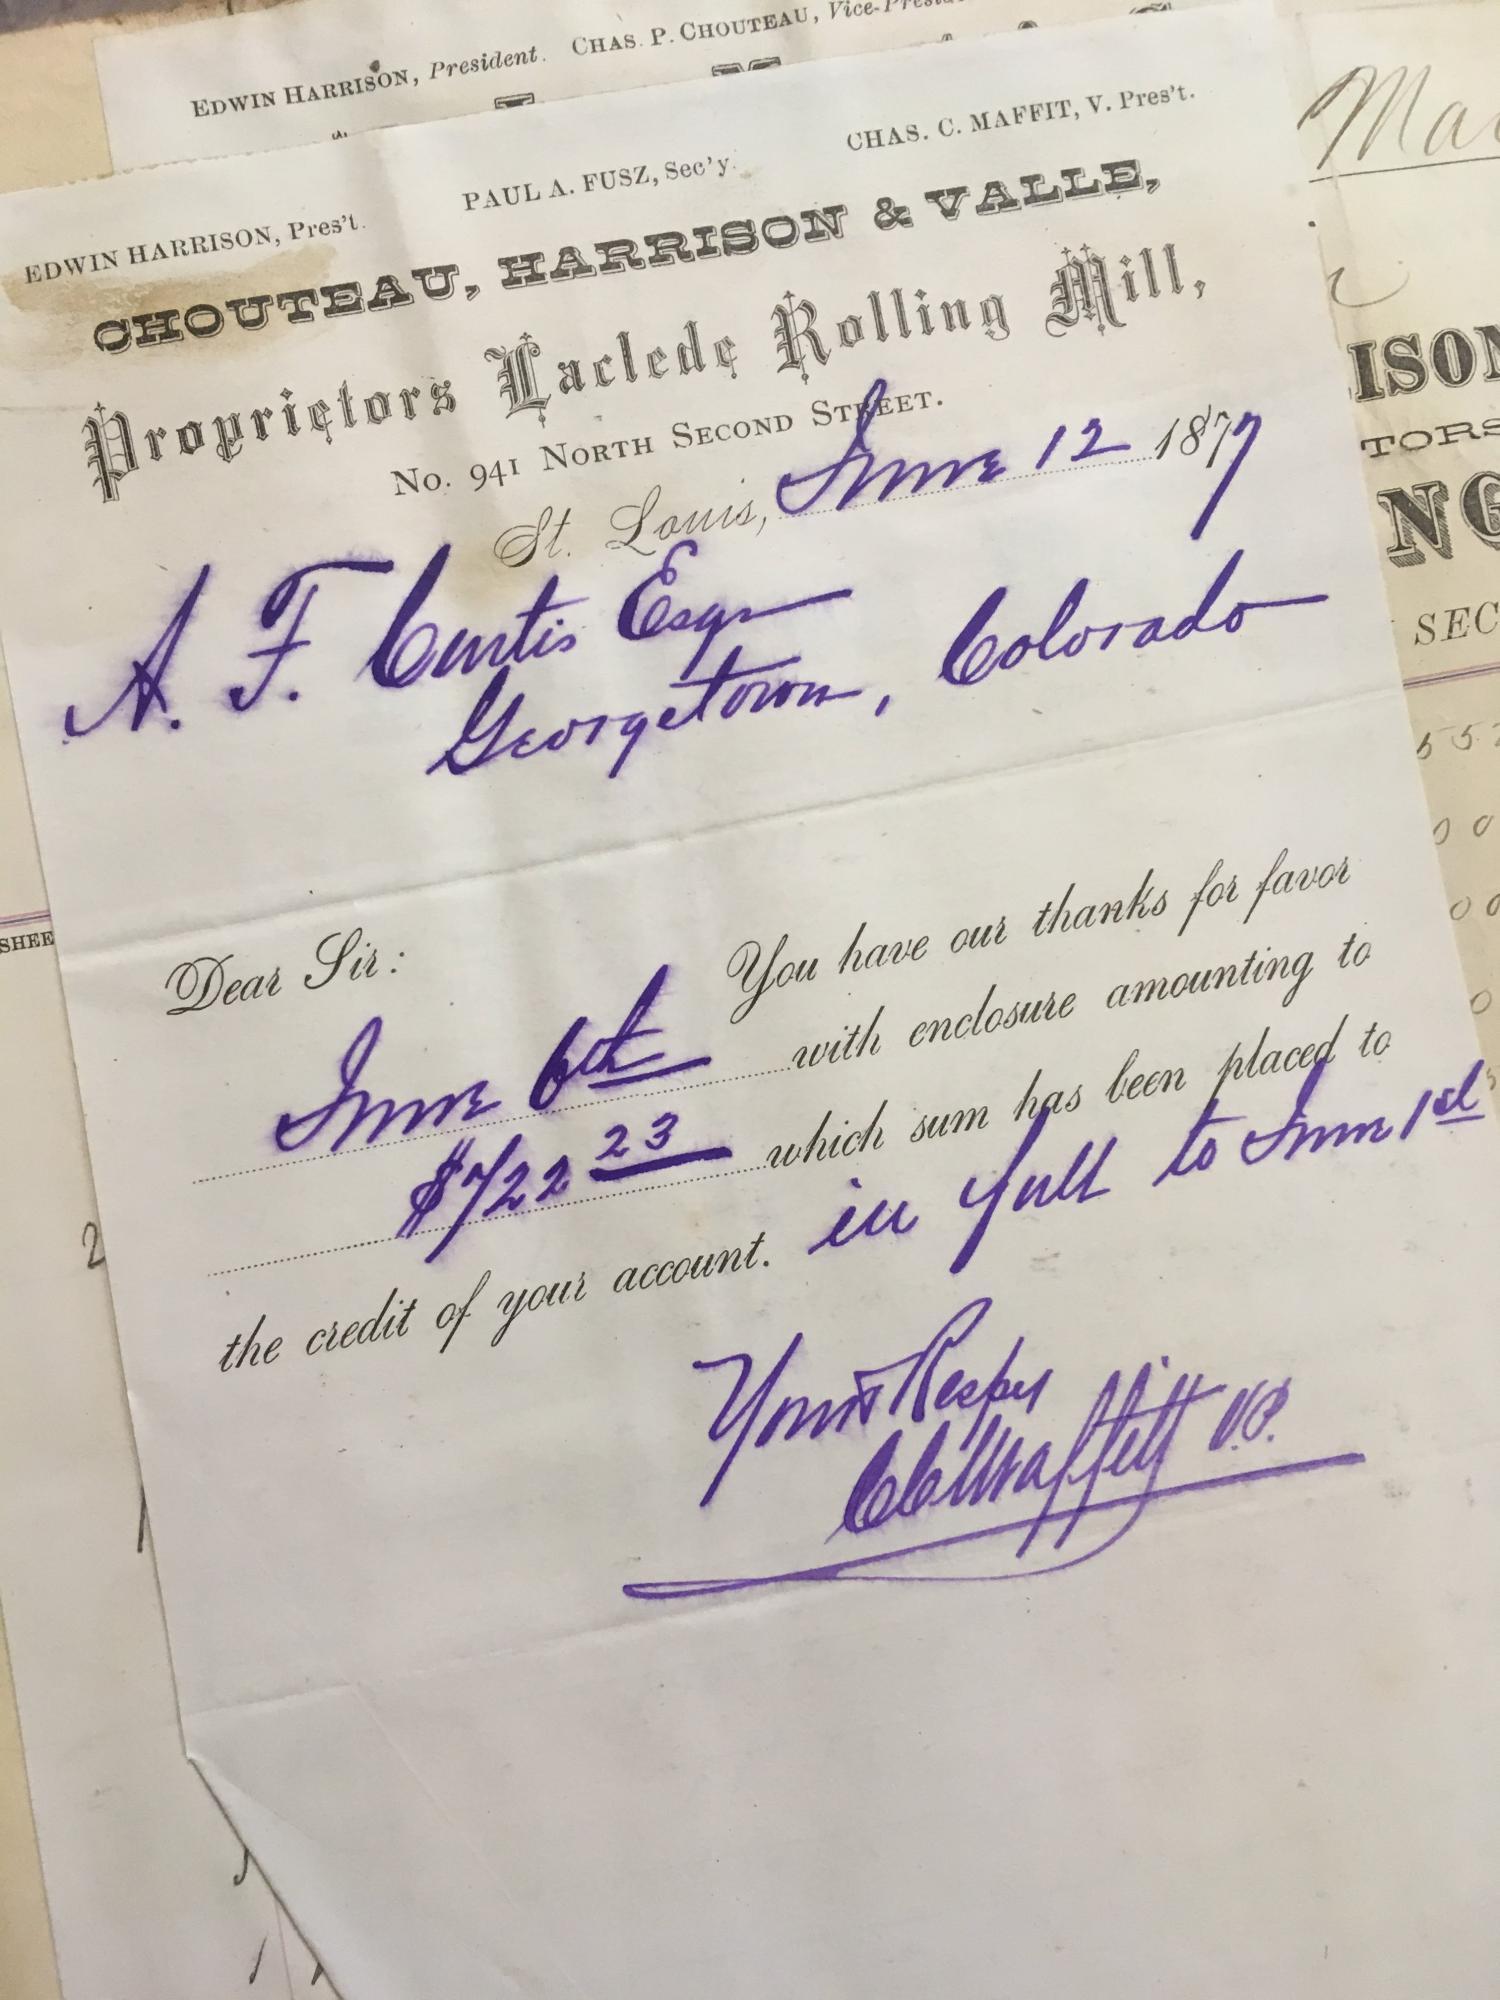 EDWIN HARRISON, President. CHAS. P. CHOUTEAU, Vice-Presid
EDWIN HARRISON, Pres't. PAUL A. FUSZ, Sec'y. CHAS. C. MAFFIT, V. Pres't.
CHOUTEAU, HARRISON & VALLE,
Proprietors Laclede Rolling Mill,
No. 941 NORTH SECOND STREET.
St. Louis, June 12 1877
A. F. Curtis Esqr
Georgetown, Colorado
Dear Sir:
You have our thanks for favor
June 6th with enclosure amounting to
$722 23 which sum has been placed to
the credit of your account. in full to June 1st
Yours Respy
CCMaffitt V.P.
Ma
ISON
TORS
NG
SEC
SHEE